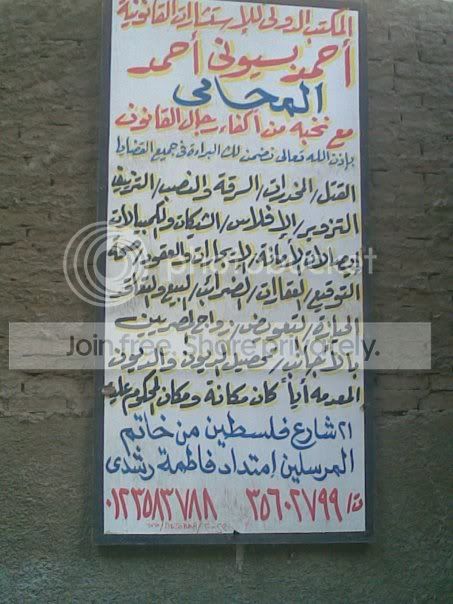 المكتب الدولى للإستشارات القانونية
أحمد بسيونى أحمد
المحامى
مع نخبه من أكفاء رجال القانون
بإذن الله تعالى نضمن لك البراءة فى جميع القضايا
القتل/المخدرات/السرقة والنصب/التزييف
التزوير/الإفلاس/الشيكات والكمبيالات
إيصالات الأمانة/الإيجارات والعقود/صحة
التوقيع/العقارات/الضرائب/البيع
الحيازة/التعويض/زواج المصريين
بالأجانب/تحصيل الديون
أياً كان مكانة ومكان المحكوم عليه
٢١ شارع فلسطين من خاتم
المرسلين إمتداد فاطمة رشدى
ت/ ٣٥٦٠٢٧٩٩ ٠١٢٣٥٨٣٧٨٨
photobucket
Join free. Share privately.